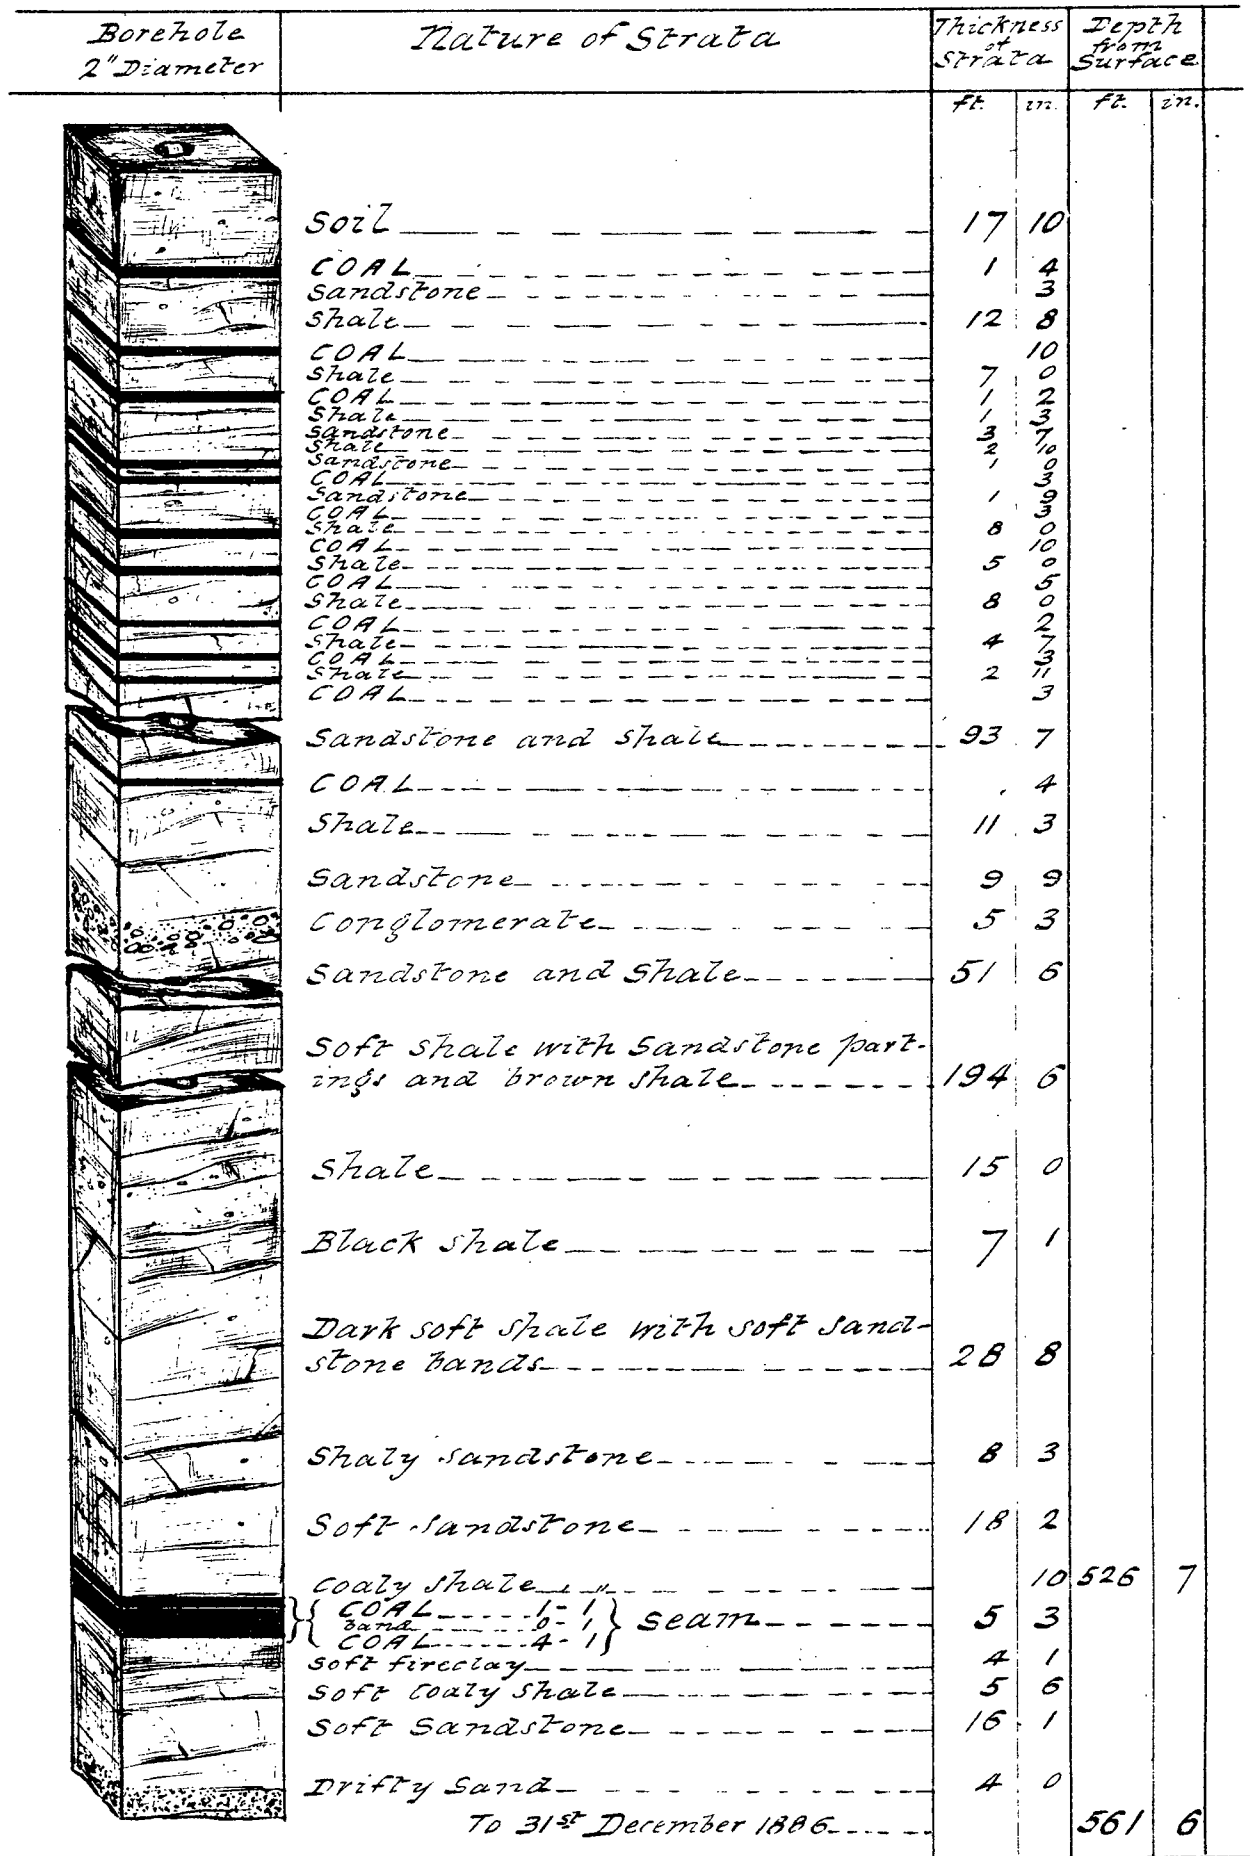 Borehole 2" Diameter Nature of Strata Thickness of Strata Depth from Surface
ft. in. ft. in.
Soil 17 10
COAL 1 4
Sandstone 3
Shale 12 8
COAL 10
Shale 7 0
COAL 1 2
Shale 1 3
Sandstone 3 7
Shale 2 10
Sandstone 1 0
COAL 3
Sandstone 1 9
COAL 3
Shale 8 0
COAL 10
Shale 5 0
COAL 5
Shale 8 0
COAL 2
Shale 4 7
COAL 3
Shale 2 11
COAL 3
Sandstone and Shale 93 7
COAL 4
Shale 11 3
Sandstone 9 9
Conglomerate 5 3
Sandstone and Shale 51 6
Soft Shale with Sandstone part-
ings and brown shale 194 6
Shale 15 0
Black shale 7 1
Dark soft shale with soft sand-
stone bands 28 8
Shaly sandstone 8 3
Soft sandstone 18 2
Coaly shale 10 526 7
COAL 1-1
band 0-1 } seam 5 3
COAL 4-1
Soft fireclay 4 1
Soft Coaly Shale 5 6
Soft Sandstone 16 1
Drifty Sand 4 0
To 31st December 1886 561 6